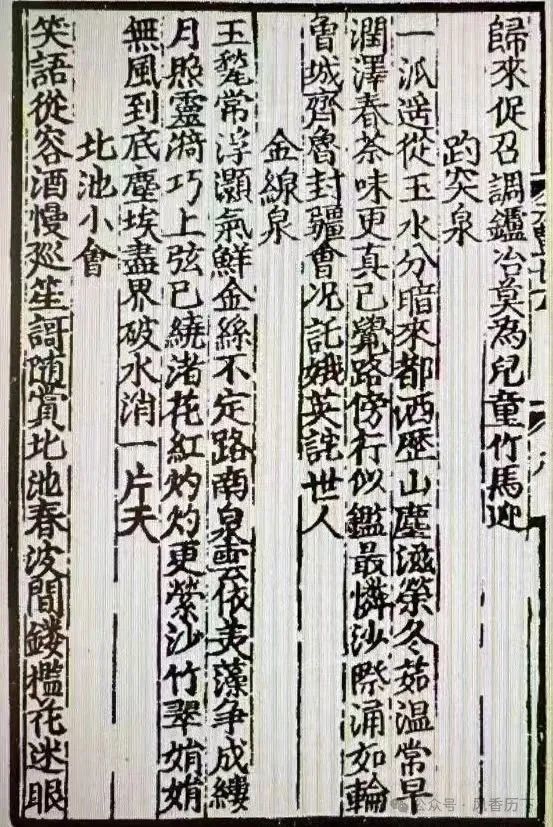 歸來促召調鑪冶莫為兒童竹馬迎
趵突泉
一派遥從玉水分暗來都洒歷山塵滋榮冬茹温常早
潤澤春茶味更真已覺路傍行似鑑最憐沙際涌如輪
曾城齊魯封疆會况託娥英詫世人
金線泉
玉甃常浮灝氣鮮金絲不定路南泉雲依美藻争成縷
月照靈漪巧上弦已繞渚花紅灼灼更縈沙竹翠娟娟
無風到底塵埃盡界破水消一片天
北池小會
笑語從容酒慢廵笙謌随賞北池春波間鏤檻花迷眼
公众号